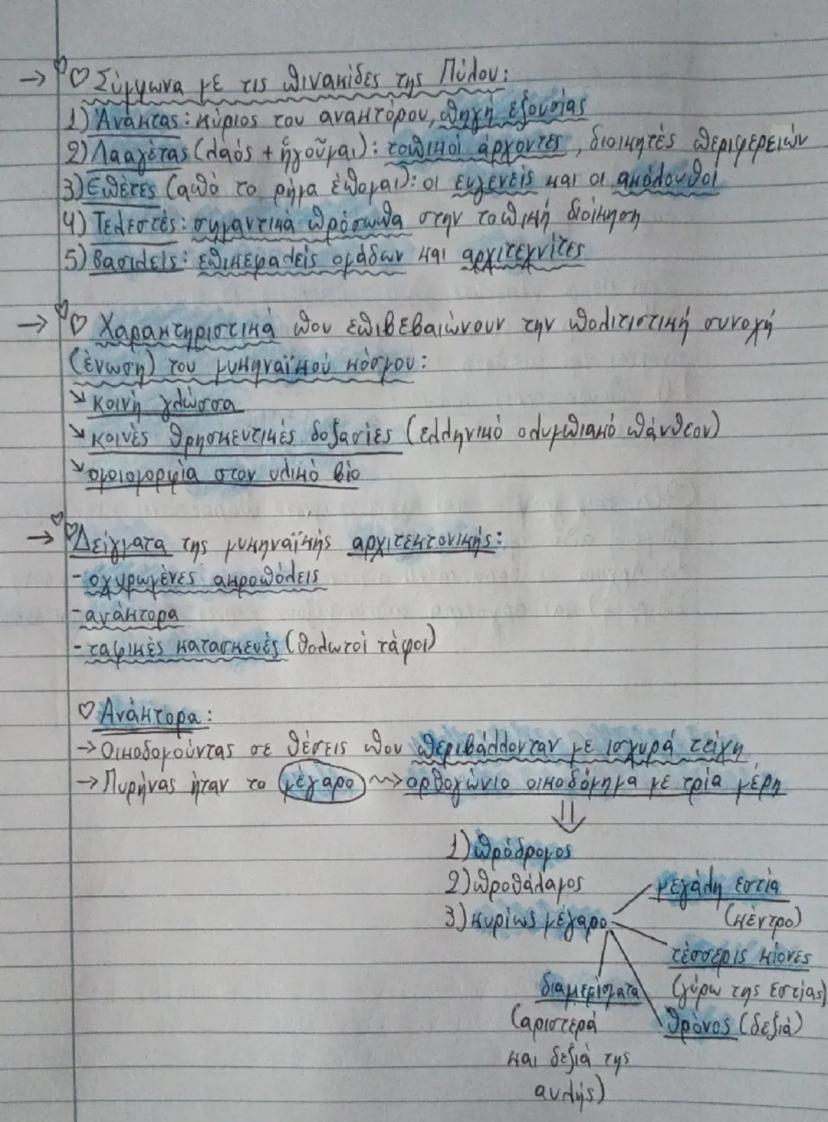 → ♡ Σύμφωνα με τις πινακίδες της Πύλου:
1) Άνακτας: κύριος του ανακτόρου, πηγή εξουσίας
2) Λααγέτας (λαός + ἡγοῦμαι): τοπικοί άρχοντες, διοικητές περιφερειών
3) Επέτες (από το ρήμα έπομαι): οι ευγενείς και οι ακόλουθοι
4) Τελεστές: σημαντικά πρόσωπα στην τοπική διοίκηση
5) Βασιλείς: επικεφαλείς ομάδων και αρχιτεχνίτες
→ ♡ Χαρακτηριστικά που επιβεβαιώνουν την πολιτιστική συνοχή
(ένωση) του μυκηναϊκού κόσμου:
↘ κοινή γλώσσα
↘ κοινές θρησκευτικές δοξασίες (ελληνικό ολυμπιακό πάνθεον)
↘ ομοιομορφία στον υλικό βίο
→ ♡ Δείγματα της μυκηναϊκής αρχιτεκτονικής:
- οχυρωμένες ακροπόλεις
- ανάκτορα
- ταφικές κατασκευές (θολωτοί τάφοι)
♡ Ανάκτορα:
→ Οικοδομούντας σε θέσεις που περιβάλλονταν με ισχυρά τείχη
→ Πυρήνας ήταν το μέγαρο ⤳ ορθογώνιο οικοδόμημα με τρία μέρη
⇓
1) πρόδρομος
2) προθάλαμος
3) κυρίως μέγαρο
μεγάλη εστία
(κέντρο)
τέσσερις κίονες
(γύρω της εστίας)
θρόνος (δεξιά)
διαμερίσματα
(αριστερά
και δεξιά της
αυλής)